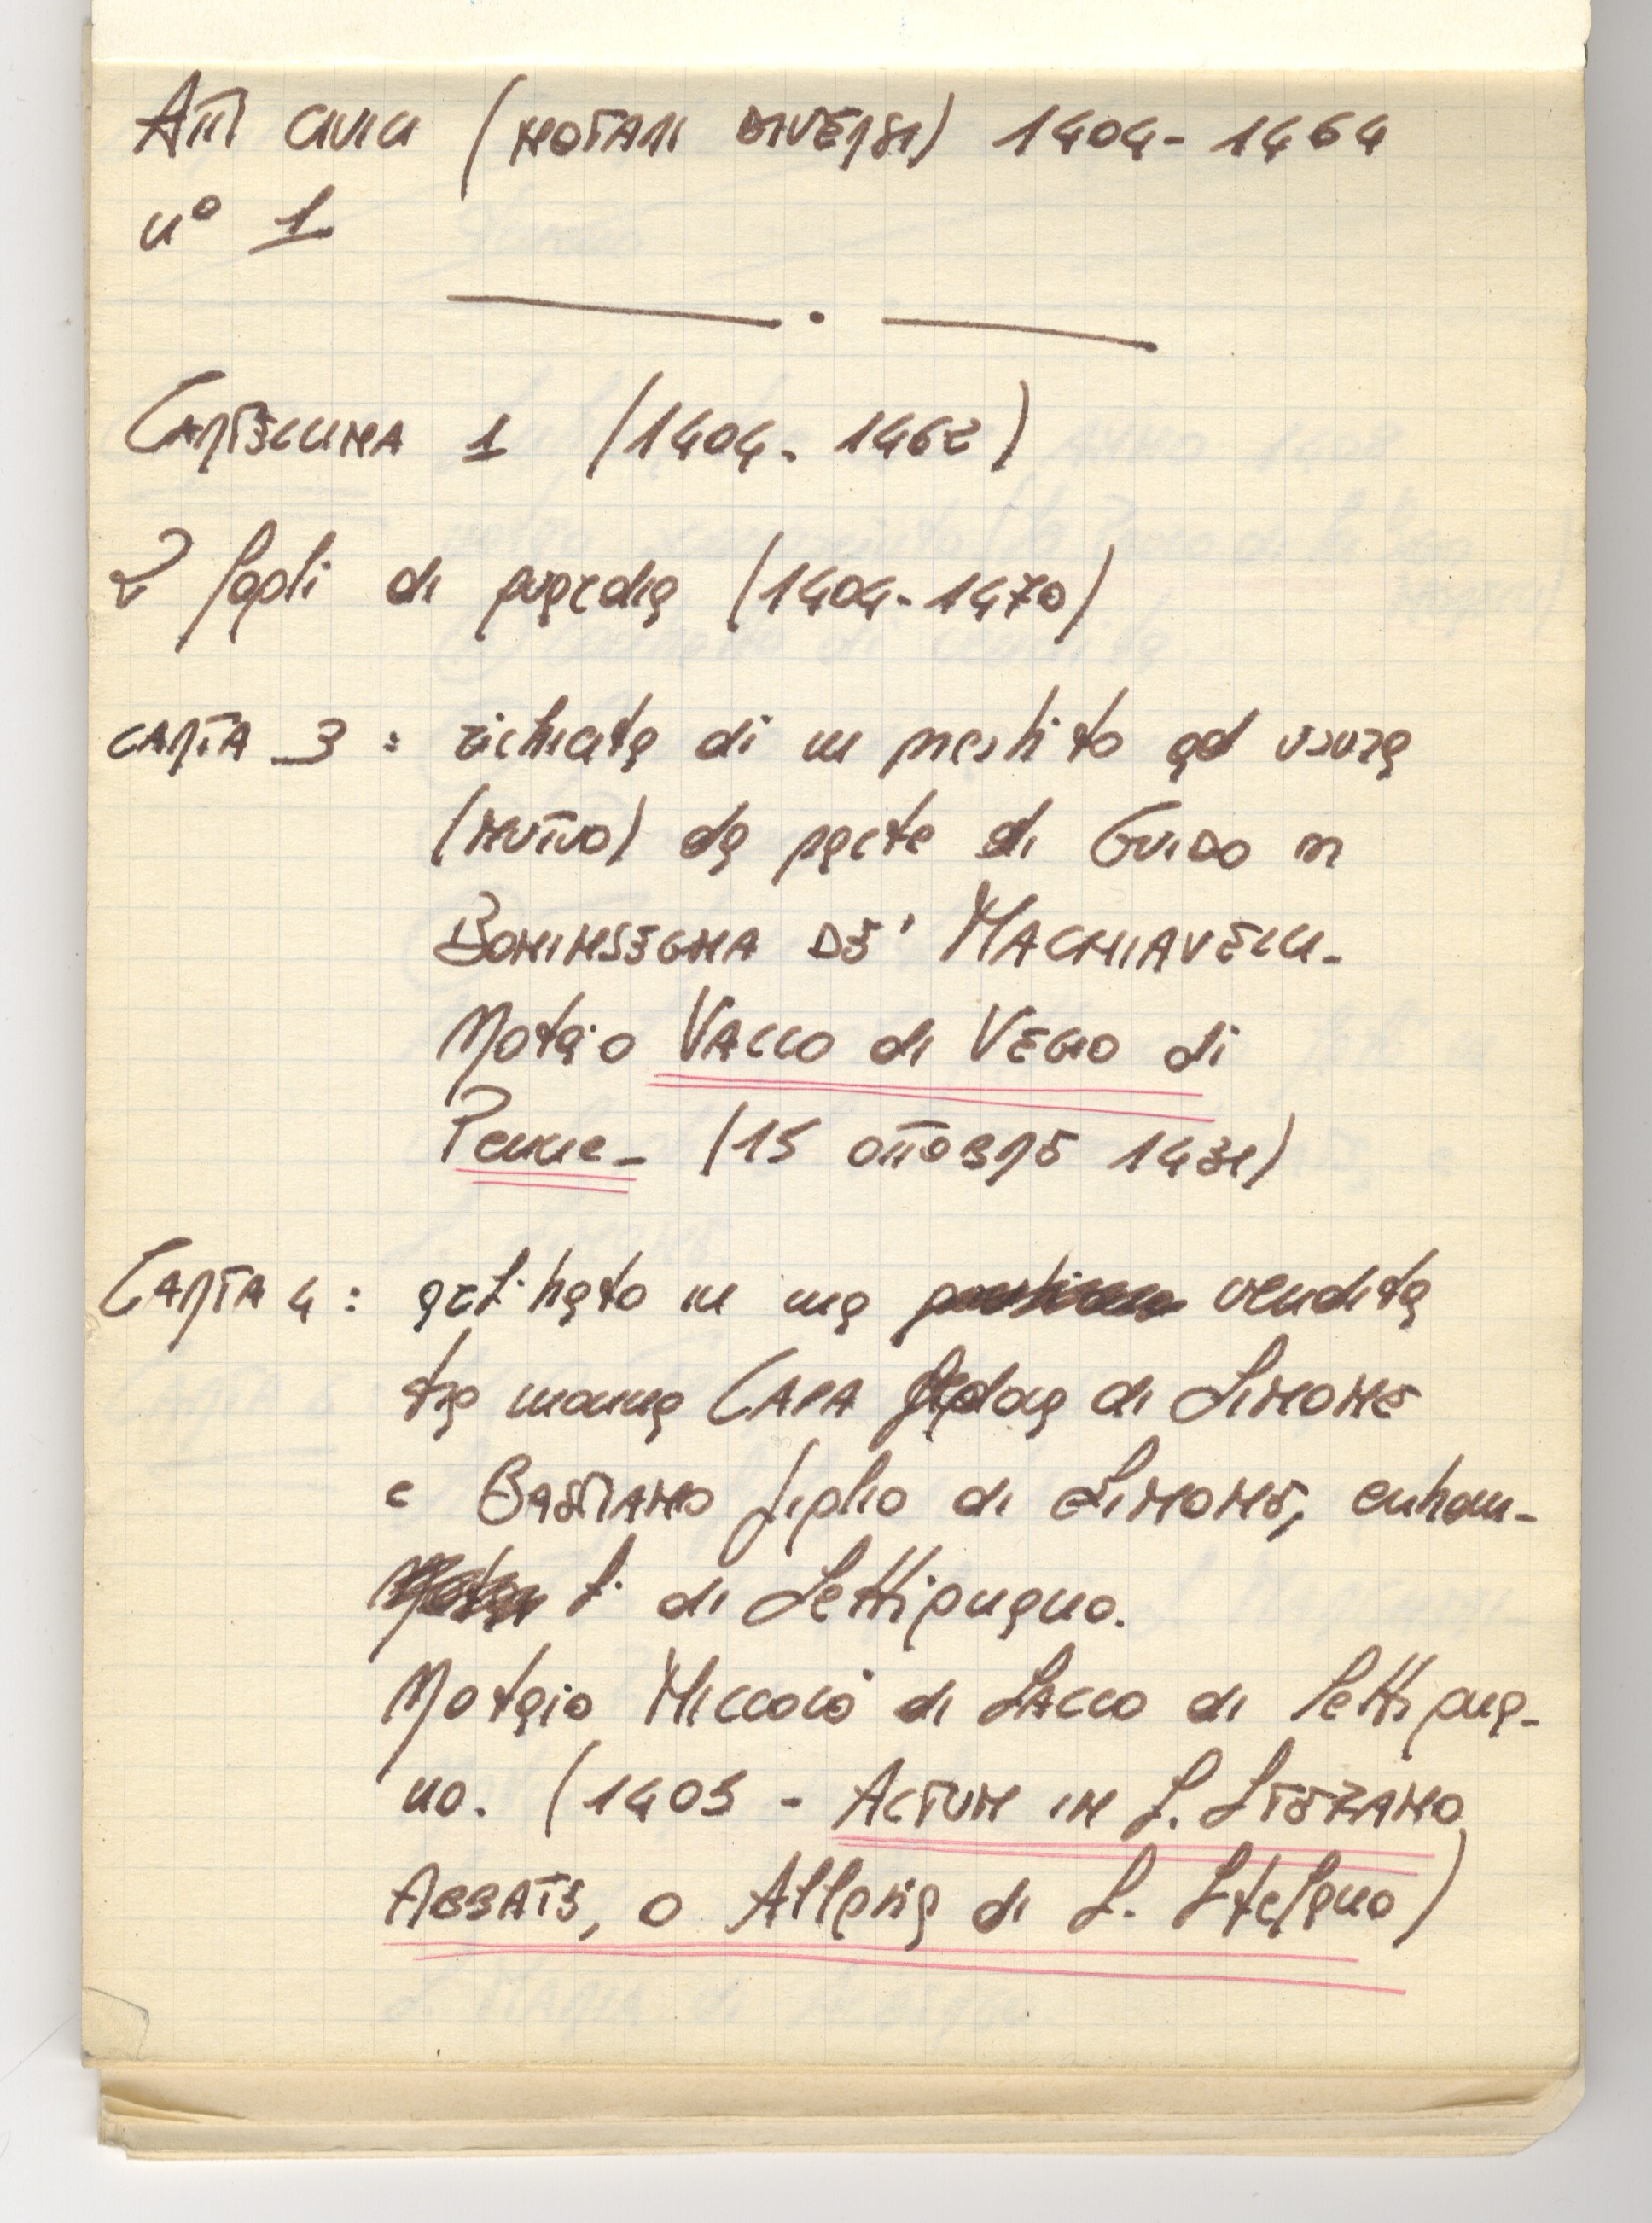 ATTI CIVILI (NOTARI DIVERSI) 1404-1464
n° 1
CARTELLINA 1 (1404-1462)
2 fogli di guardia (1404-1470)
CARTA 3: richiesta di un prestito ad usura
(MUTUO) da parte di GUIDO DI
BONINSEGNA DE' MACHIAVELLI-
Notaio VACCO di VEGIO di
Penne- (15 OTTOBRE 1431)
CARTA 4: arbitrato in una vendita
tra monna CARA figlia di SIMONE
e BASTIANO figlio di SIMONE, entram-
bi di Settignano.
Notaio NICCOLÒ di LACCO di Settigna-
no. (1405 - ACTUM IN S. STEFANO
ABBATE, o All di S. Stefano)